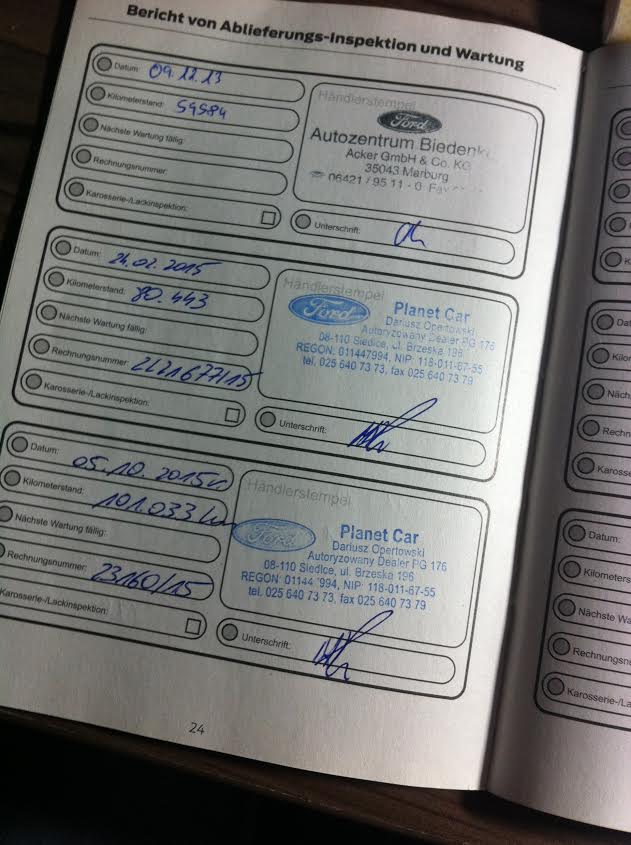 Bericht von Ablieferungs-Inspektion und Wartung
Datum: 09.12.13
Kilometerstand: 59984
Nächste Wartung fällig:
Rechnungsnummer:
Karosserie-/Lackinspektion:
Händlerstempel
Ford
Autozentrum
Acker GmbH & Co. KG
35043 Marburg
06421 / 95 11 - 0
Unterschrift:
Datum: 24.02.2015
Kilometerstand: 80.443
Nächste Wartung fällig:
Rechnungsnummer:
Karosserie-/Lackinspektion:
Händlerstempel
Ford
Planet Car
Dariusz Opertowski
Autoryzowany Dealer PG 176
08-110 Siedlce, ul. Brzeska 196
REGON: 011447994, NIP: 118-011-67-55
tel. 025 640 73 73, fax 025 640 73 79
Unterschrift:
Datum: 05.10.2015
Kilometerstand: 101.033 km
Nächste Wartung fällig:
Rechnungsnummer: 23160/15
Karosserie-/Lackinspektion:
Händlerstempel
Ford
Planet Car
Dariusz Opertowski
Autoryzowany Dealer PG 176
08-110 Siedlce, ul. Brzeska 196
REGON: 01144 994, NIP: 118-011-67-55
tel. 025 640 73 73, fax 025 640 73 79
Unterschrift:
24
Datum: